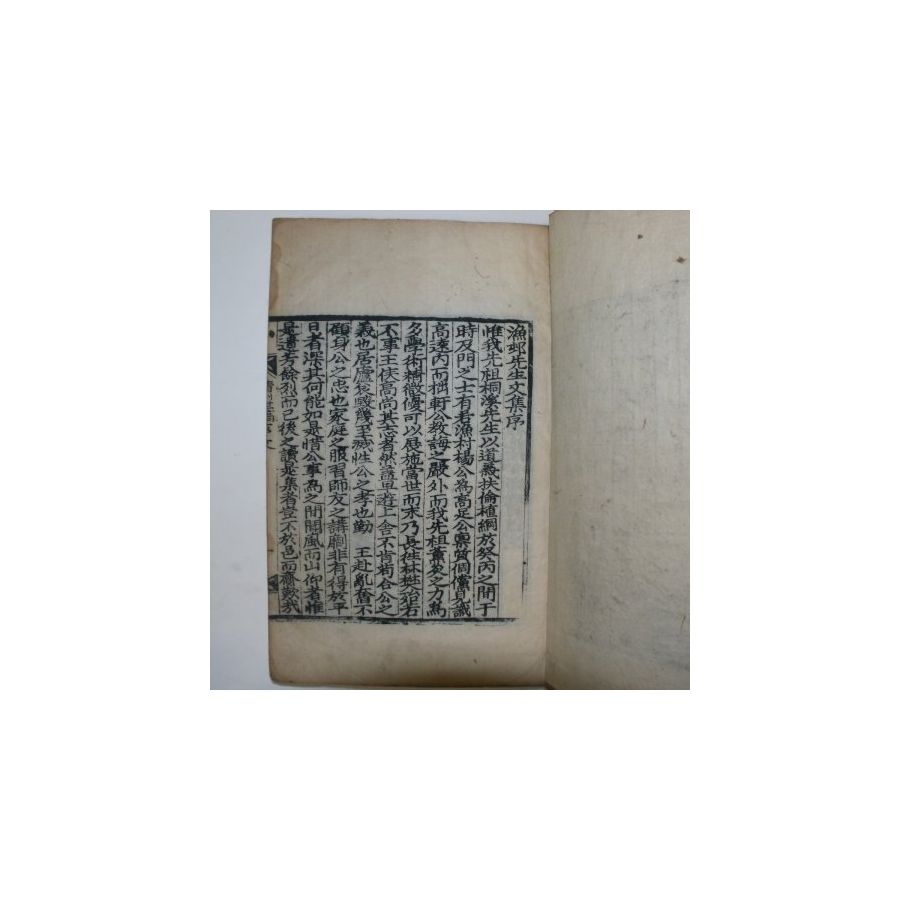 漁邨先生文集序
惟我先祖桐溪先生以道義扶倫植綱於癸丙之間于
時及門之士有若漁村楊公為高足公禀質倜儻見識
高邁內而拙軒公教誨之嚴外而我先祖薰炙之力為
多學術精微優可以展施當世而求乃長往林樊若
不事王侯高尚其志者然蓋早遊上舍不肯苟合公之
義也居廬哀毀幾至滅性公之孝也勤 王赴亂奮不
顧身公之忠也家庭之服習師友之講劘非有得於平
日者深其何能如是惜公事為之間聞風而山仰者惟
是遺芳餘烈而已後之讀是集者豈不於邑而齎歎哉